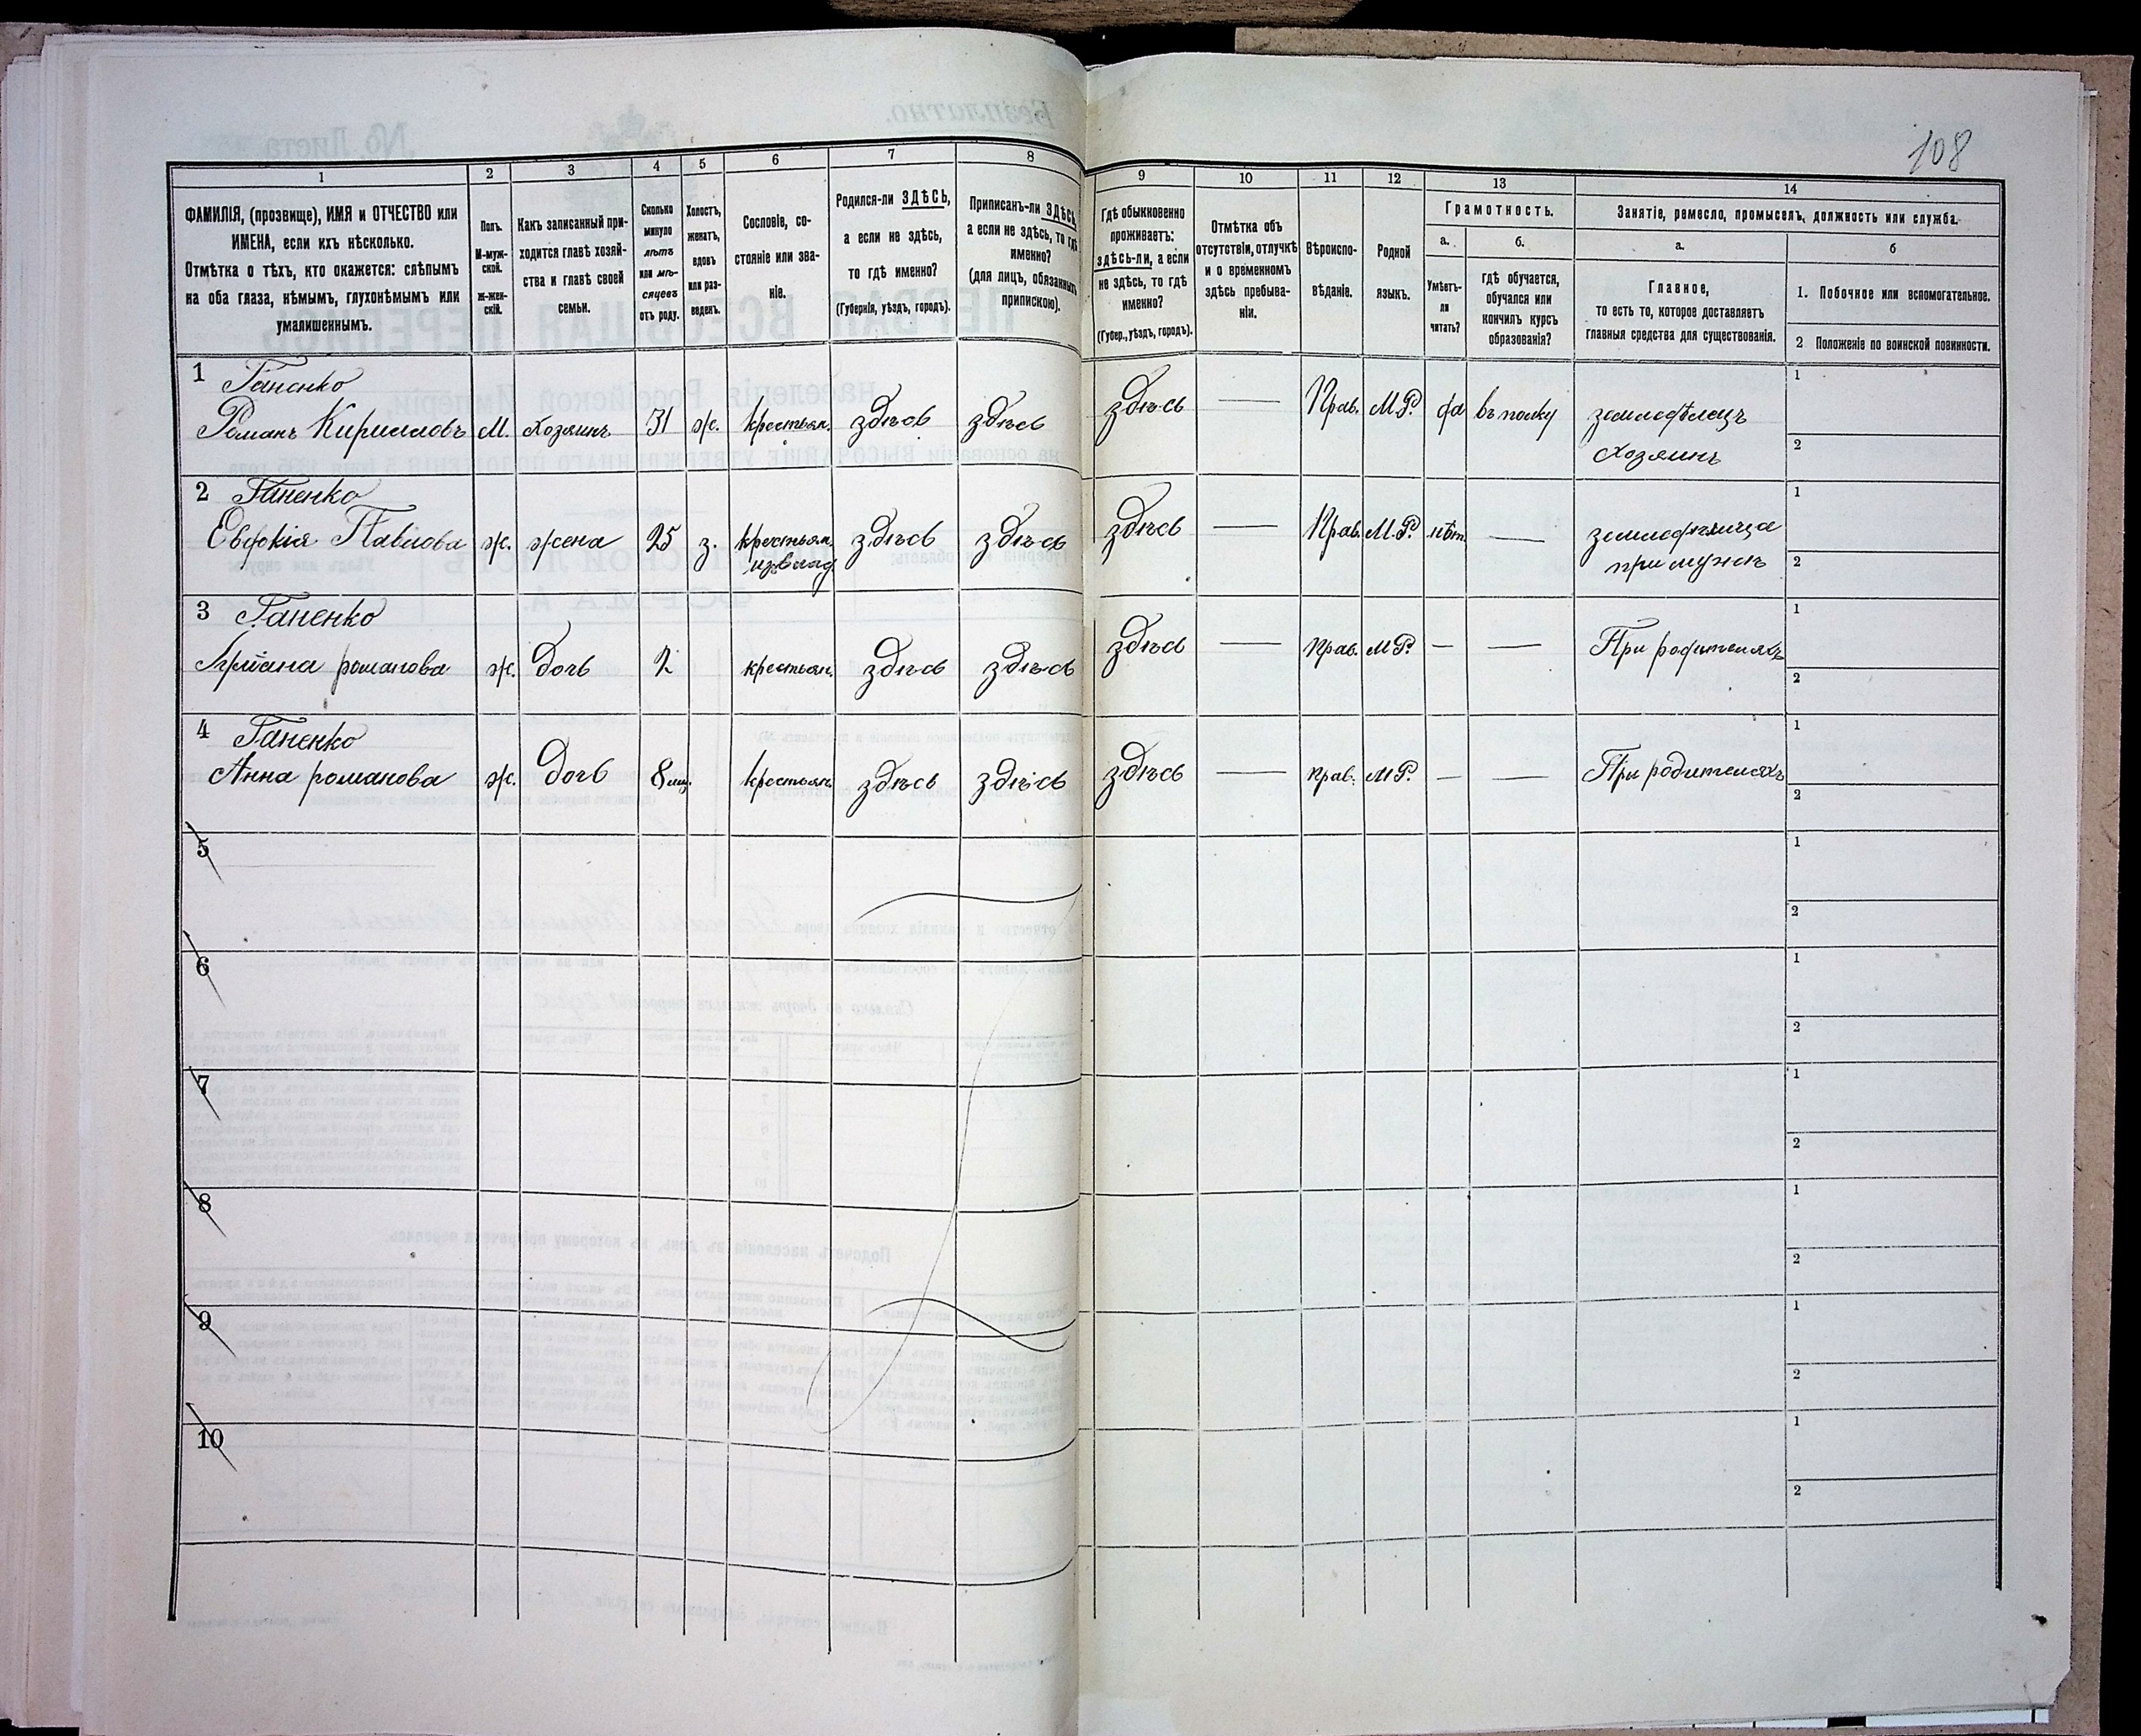 108
1
2
3
4
5
6
7
8
9
10
11
12
13
14
ФАМИЛІЯ, (прозвище), ИМЯ и ОТЧЕСТВО или
ИМЕНА, если ихъ нѣсколько.
Отмѣтка о тѣхъ, кто окажется: слѣпымъ
на оба глаза, нѣмымъ, глухонѣмымъ или
умалишеннымъ.
Полъ.
М-муж-
ской.
Ж-жен-
скій.
Какъ записанный при-
ходится главѣ хозяй-
ства и главѣ своей
семьи.
Сколько
минуло
лѣтъ
или мѣ-
сяцевъ
отъ роду.
Холостъ,
женатъ,
вдовъ
или раз-
веденъ.
Сословіе, со-
стояніе или зва-
ніе.
Родился-ли ЗДѢСЬ,
а если не здѣсь,
то гдѣ именно?
(Губернія, уѣздъ, городъ).
Приписанъ-ли ЗДѢСЬ,
а если не здѣсь, то гдѣ
именно?
(для лицъ, обязанныхъ
припискою).
Гдѣ обыкновенно
проживаетъ:
здѣсь-ли, а если
не здѣсь, то гдѣ
именно?
(Губер., уѣздъ, городъ).
Отмѣтка объ
отсутствіи, отлучкѣ
и о временномъ
здѣсь пребыва-
ніи.
Вѣроиспо-
вѣданіе.
Родной
языкъ.
Грамотность.
а.
б.
Умѣетъ-
ли
читать?
гдѣ обучается,
обучался или
кончилъ курсъ
образованія?
Занятіе, ремесло, промыселъ, должность или служба.
а.
б
Главное,
то есть то, которое доставляетъ
главныя средства для существованія.
1. Побочное или вспомогательное.
2 Положеніе по воинской повинности.
1 Гапенко
Романъ Кирилловъ М. Хозяинъ 31 ж. крестьян. здѣсь здѣсь здѣсь — Прав. М.Р. да въ полку земледѣлецъ
хозяинъ
1
2
2 Гапенко
Евдокія Павлова ж. жена 25 з. крестьян. здѣсь здѣсь здѣсь — Прав. М.Р. нѣт. —
из влад.
при мужѣ
1
2
3 Гапенко
романова ж. дочь 2 крестьян. здѣсь здѣсь здѣсь — Прав. М.Р. — — При родителяхъ
1
2
4 Гапенко
Анна романова ж. дочь 8 мѣс. крестьян. здѣсь здѣсь здѣсь — прав. М.Р. — — При родителяхъ
1
2
5
1
2
6
1
2
7
1
2
8
1
2
9
1
2
10
1
2